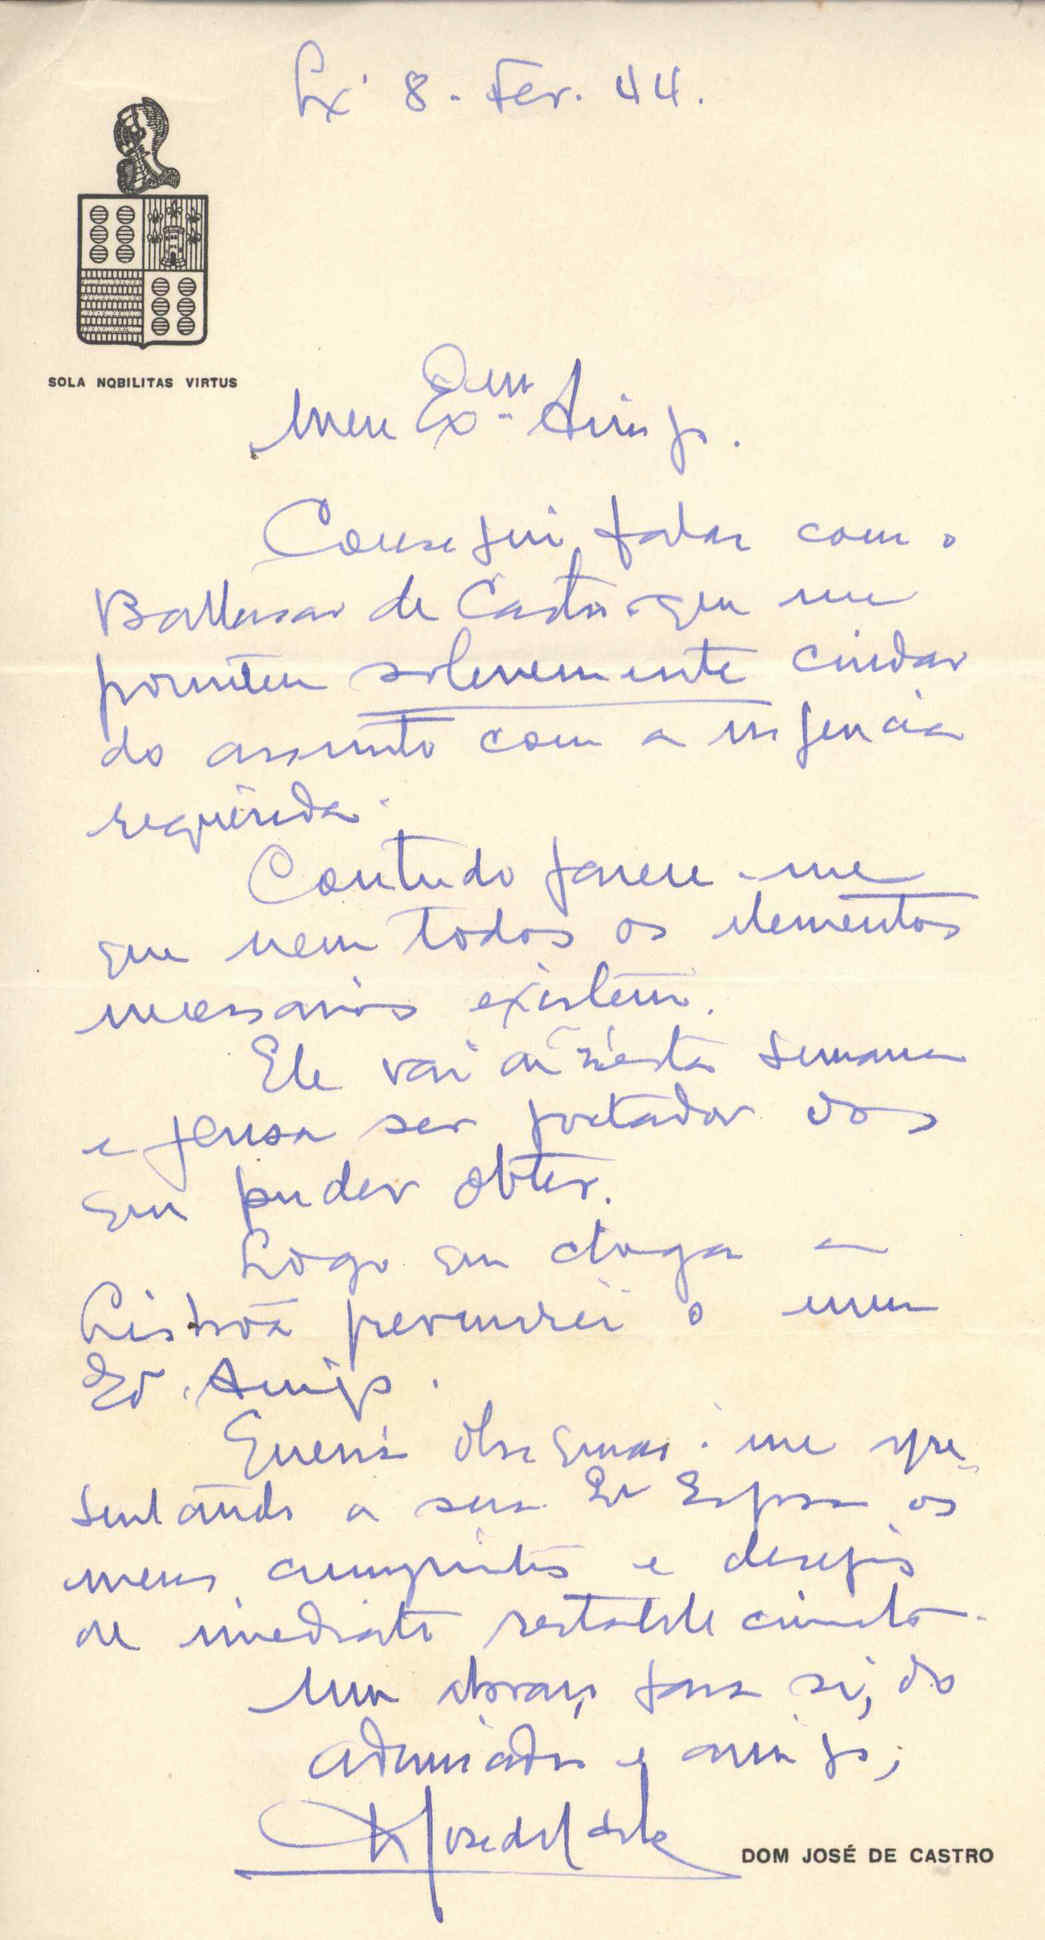 Lx. 8. Fev. 44.
SOLA NOBILITAS VIRTUS
Meu Exmo Amigo.
Consegui falar com o
Baltasar de Castro que me
prometeu solenemente cuidar
do assunto com a urgencia
requerida.
Contudo parece-me
que nem todos os elementos
necessarios existem.
Ele vai aí n'esta semana
e pensa ser portador dos
que puder obter.
Logo que chega a
Lisboa prevenirei o meu
Ex. Amigo.
Queira obsequiar-me apre-
sentando a sua Ex Esposa os
meus cumprimtos e desejos
de imediato restabelecimento.
Um abraço para si, do
admirador e amigo,
D José de Castro
DOM JOSÉ DE CASTRO